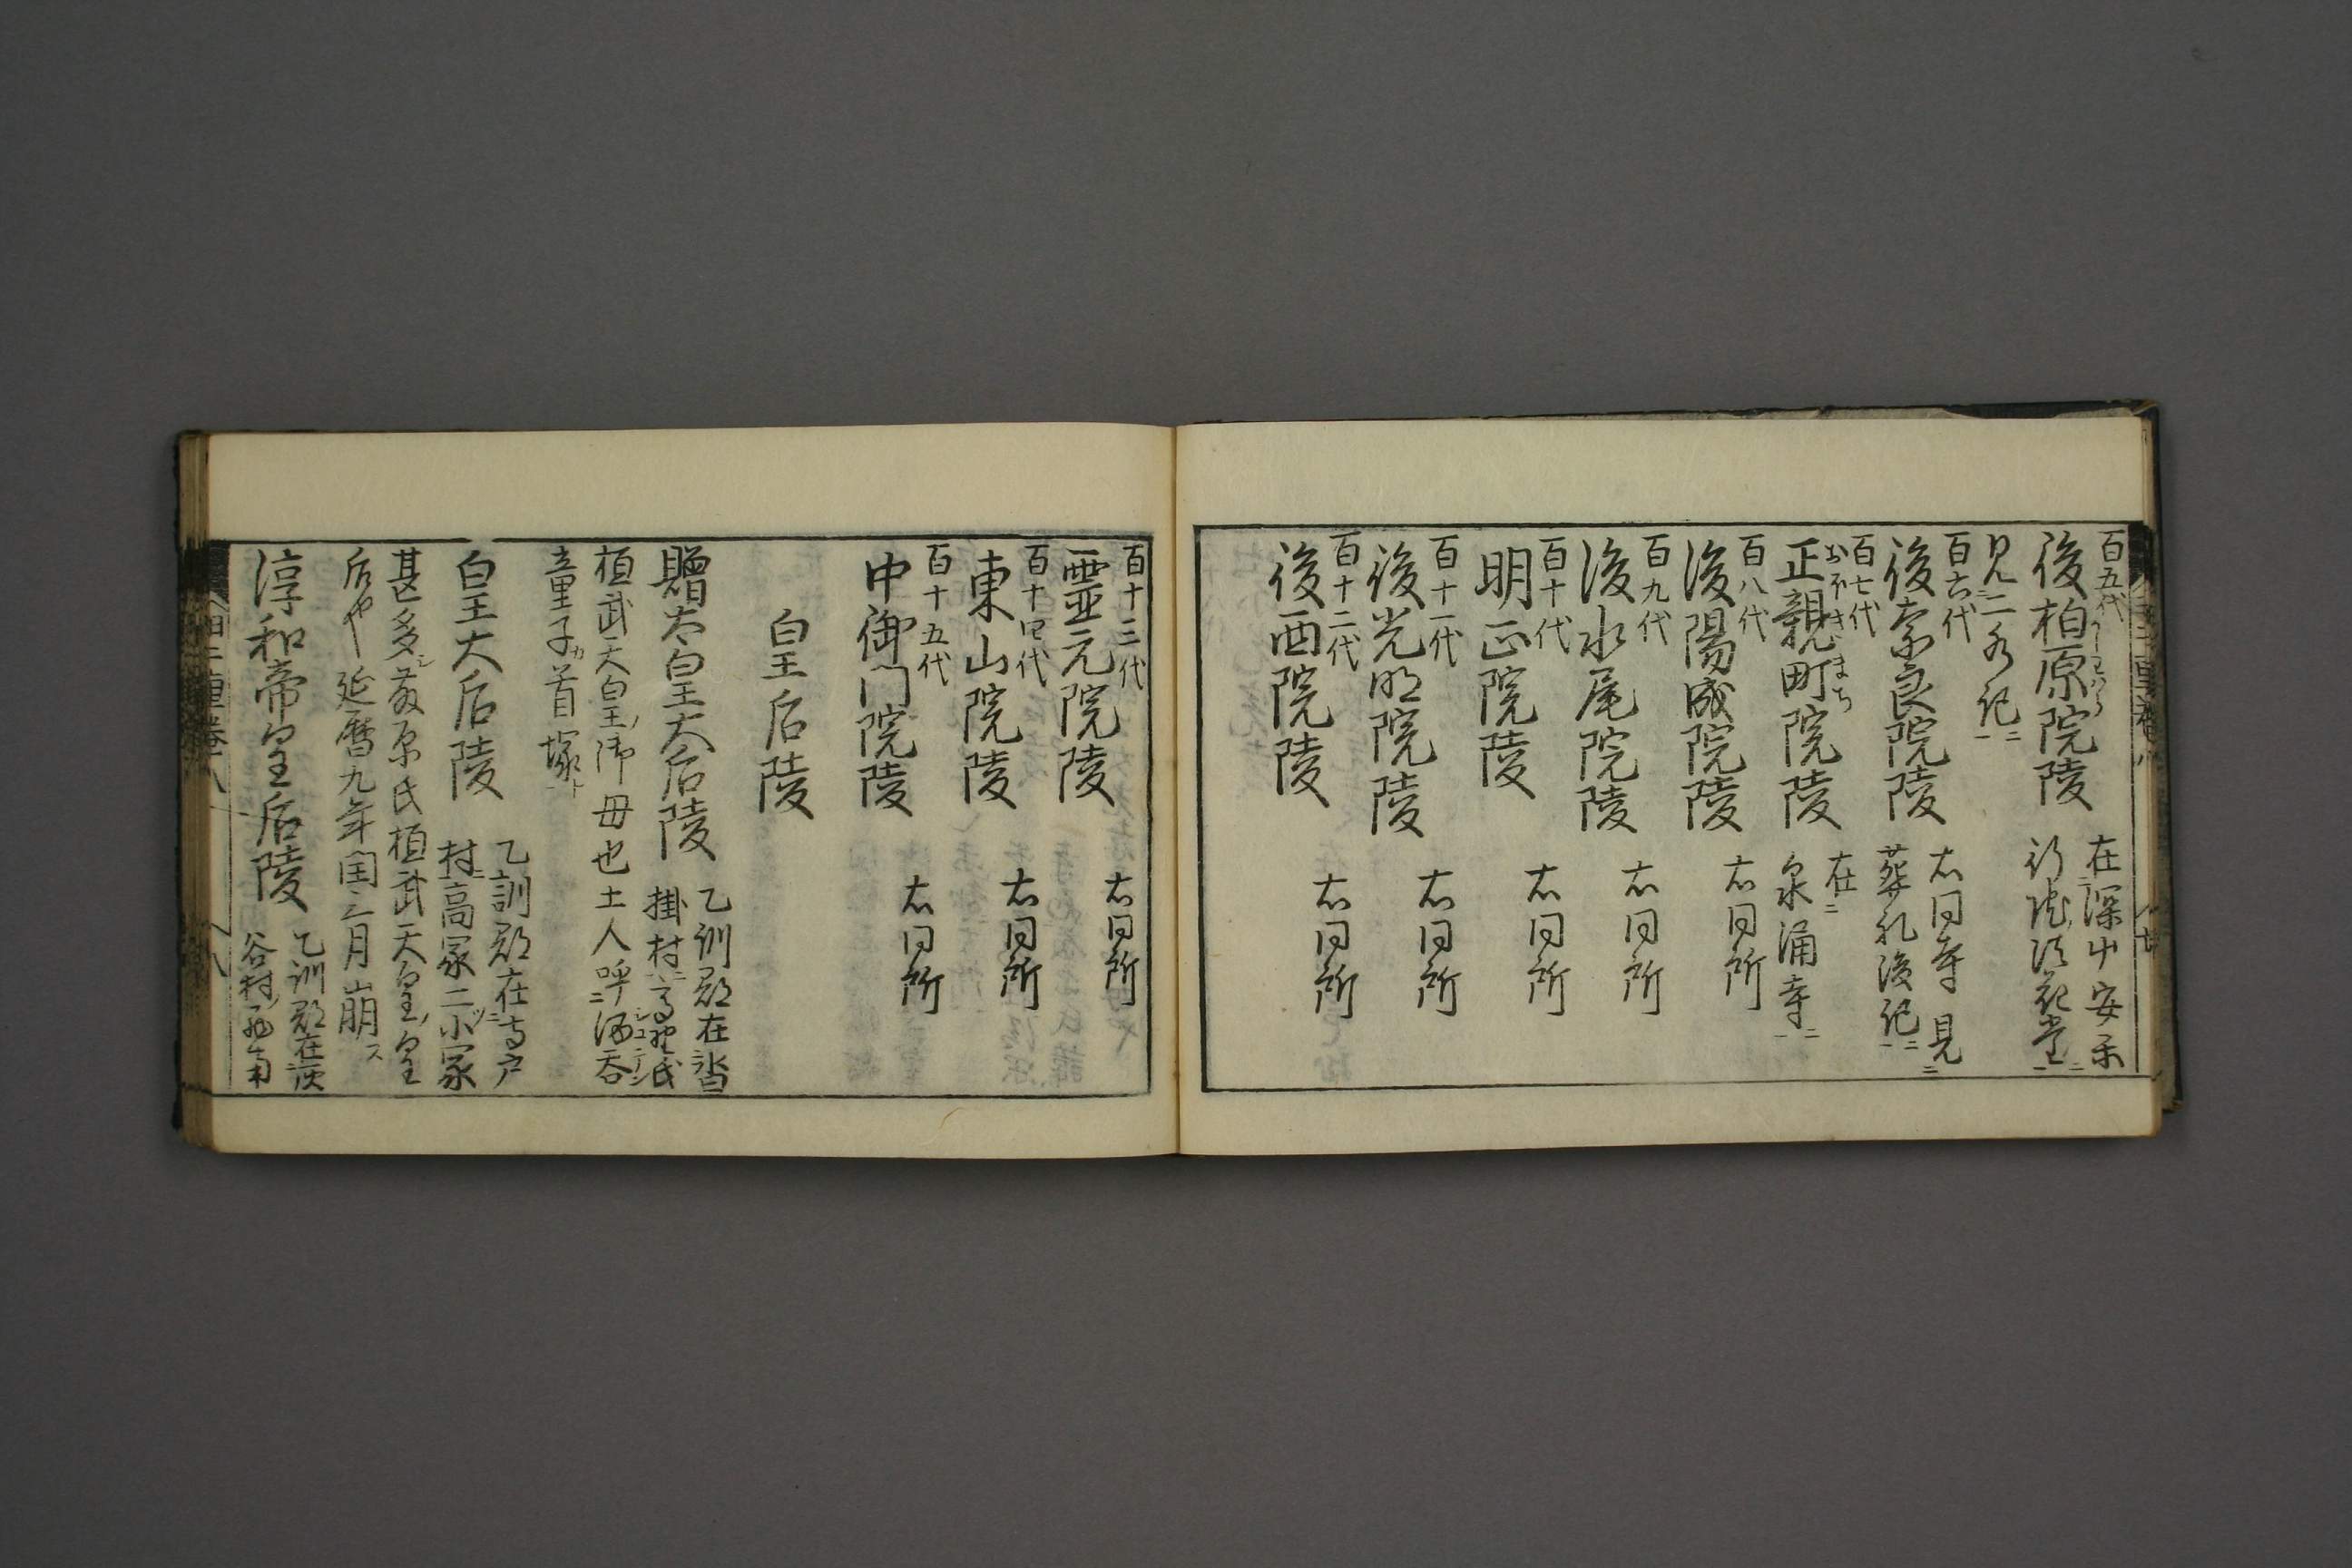 百五代
後柏原院陵 在深山安樂
行院法花堂
見二水紀
百六代
後奈良院陵 右同寺見
葬礼後紀
百七代
正親町院陵 在
おほきまち
泉涌寺
百八代
後陽成院陵 右同所
百九代
後水尾院陵 右同所
百十代
明正院陵 右同所
百十一代
後光明院陵 右同所
百十二代
後西院陵 右同所
百十三代
霊元院陵 右同所
百十四代
東山院陵 右同所
百十五代
中御門院陵 右同所
皇后陵
贈太皇大后陵 乙訓郡在沓
掛村高野氏
桓武天皇ノ御母也土人呼酒呑
童子カ首塚ト
皇大后陵 乙訓郡在寺戸
村高冢二ツ小冢
甚多シ藤原氏桓武天皇ノ皇
后也延暦九年閏三月崩ス
淳和帝皇后陵 乙訓郡在灰
谷村ノ西南